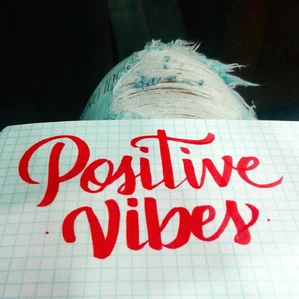 Positive
Vibes